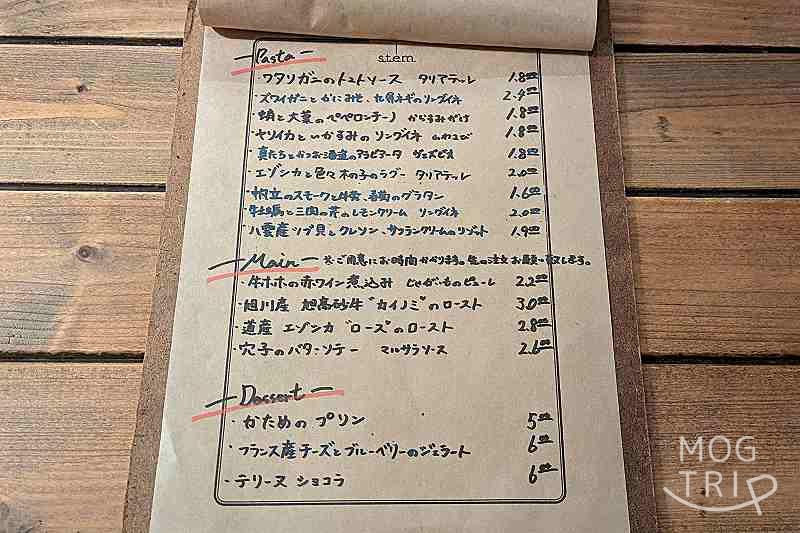 stem
Pasta
・ワタリガニのトマトソース タリアテッレ 1.8⁰⁰
・ズワイガニとかにみそ、九条ネギのリングイネ 2.4⁰⁰
・蛸と大葉のペペロンチーノ からすみがけ 1.8⁰⁰
・ヤリイカといかすみのリングイネ 1.8⁰⁰
・真たちとかつお酒盗のアラビアータ 1.8⁰⁰
・エゾシカと色々木の子のラグー タリアテッレ 2.0⁰⁰
・帆立のスモークと のグラタン 1.6⁰⁰
・牡蠣と三関の芹のレモンクリーム リングイネ 2.0⁰⁰
・八雲産ツブ貝とクレソン、サフランクリームのリゾット 1.9⁰⁰
Main ※ご用意にお時間かかります。先の注文お願い致します。
・牛ホホの赤ワイン煮込み じゃがいものピューレ 2.2⁰⁰
・旭川産 旭高砂牛"カイノミ"のロースト 3.0⁰⁰
・道産 エゾシカ"ロース"のロースト 2.8⁰⁰
・穴子のバターソテー マルサラソース 2.6⁰⁰
Dessert
・かための プリン 5⁰⁰
・フランス産チーズとブルーベリーのジェラート 6⁰⁰
・テリーヌ ショコラ 6⁰⁰
MOG
TRIP